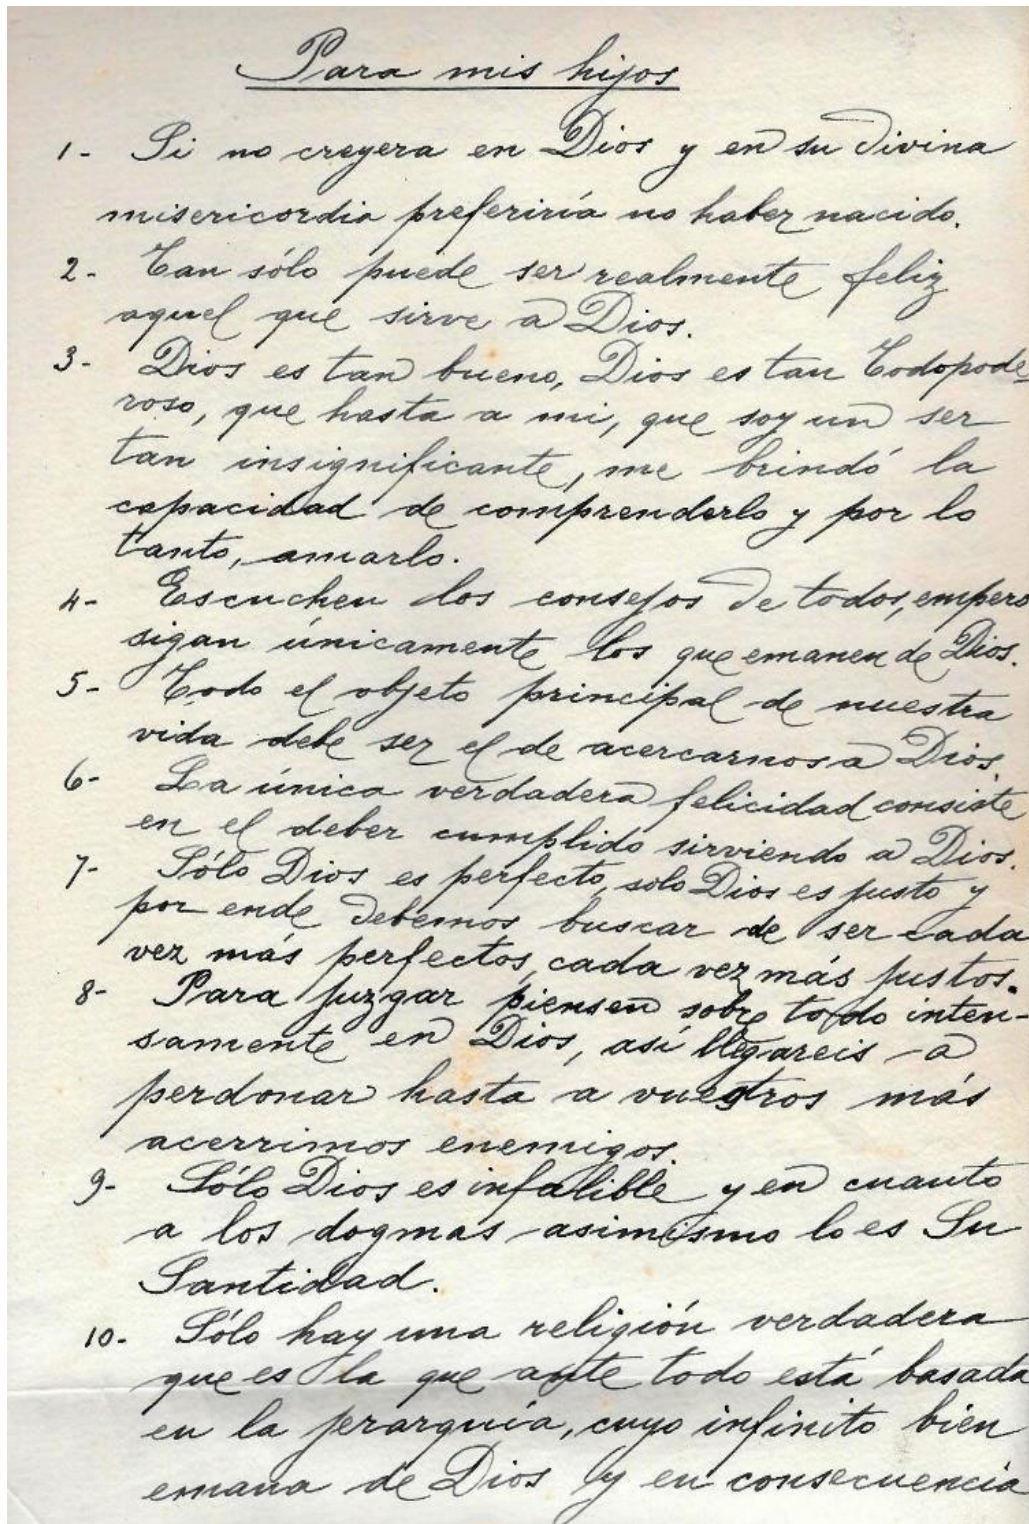 Para mis hijos
1- Si no creyera en Dios y en su divina
misericordia preferiría no haber nacido.
2- Tan sólo puede ser realmente feliz
aquel que sirve a Dios.
3- Dios es tan bueno, Dios es tan Todopode-
roso, que hasta a mi, que soy un ser
tan insignificante, me brindó la
capacidad de comprenderlo y por lo
tanto, amarlo.
4- Escuchen los consejos de todos, empero
sigan únicamente los que emanen de Dios.
5- Todo el objeto principal de nuestra
vida debe ser el de acercarnos a Dios.
6- La única verdadera felicidad consiste
en el deber cumplido sirviendo a Dios.
7- Sólo Dios es perfecto, solo Dios es justo y
por ende debemos buscar de ser cada
vez más perfectos, cada vez más justos.
8- Para juzgar piensen sobre todo inten-
samente en Dios, así llegareis a
perdonar hasta a vuestros más
acerrimos enemigos.
9- Sólo Dios es infalible y en cuanto
a los dogmas asimismo lo es Su
Santidad.
10- Sólo hay una religión verdadera
que es la que ante todo está basada
en la jerarquía, cuyo infinito bien
emana de Dios y en consecuencia